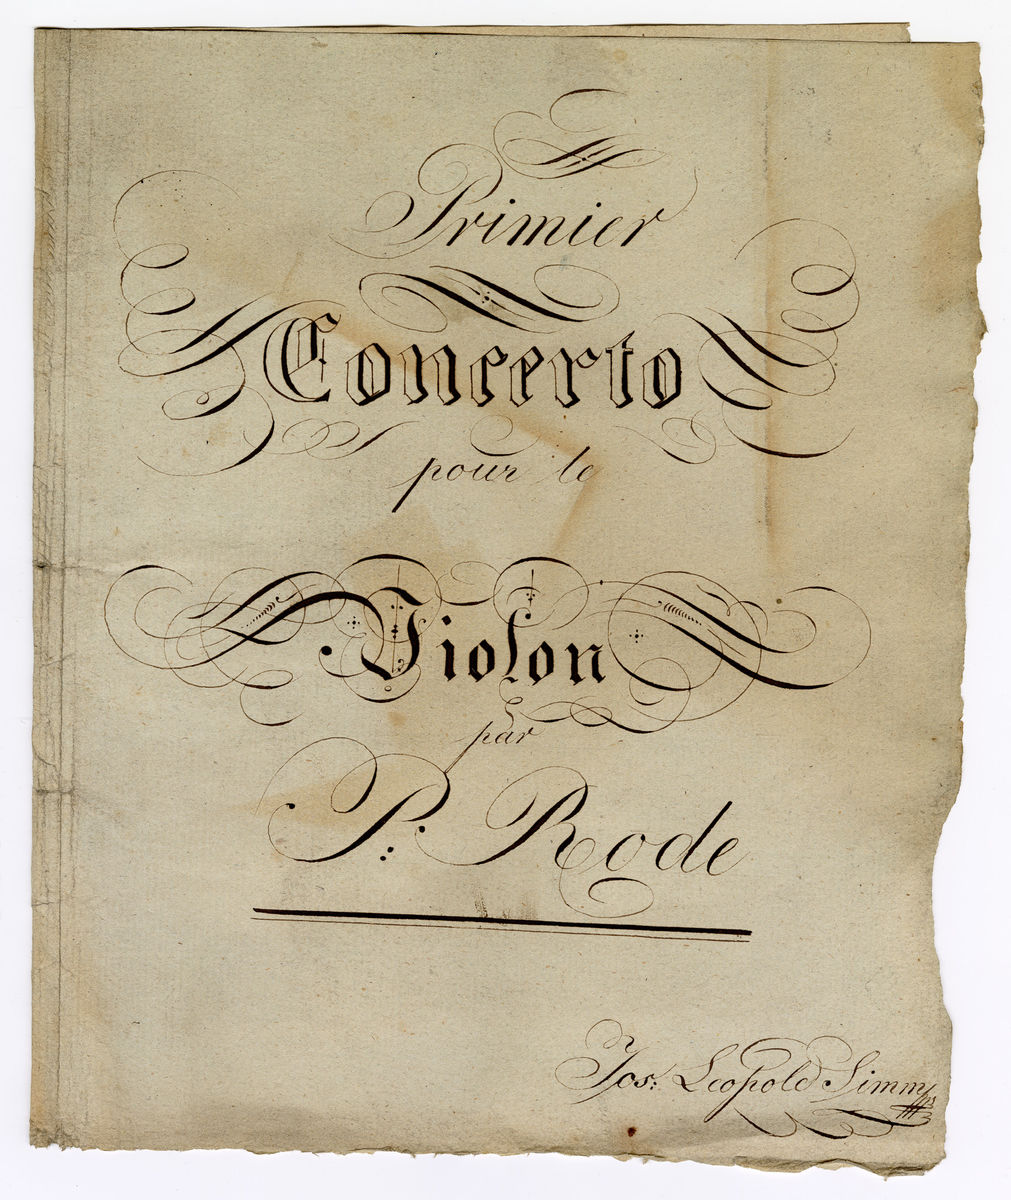 Primier
Concerto
pour le
Violon
par
P: Rode
Jos: Leopold Simm